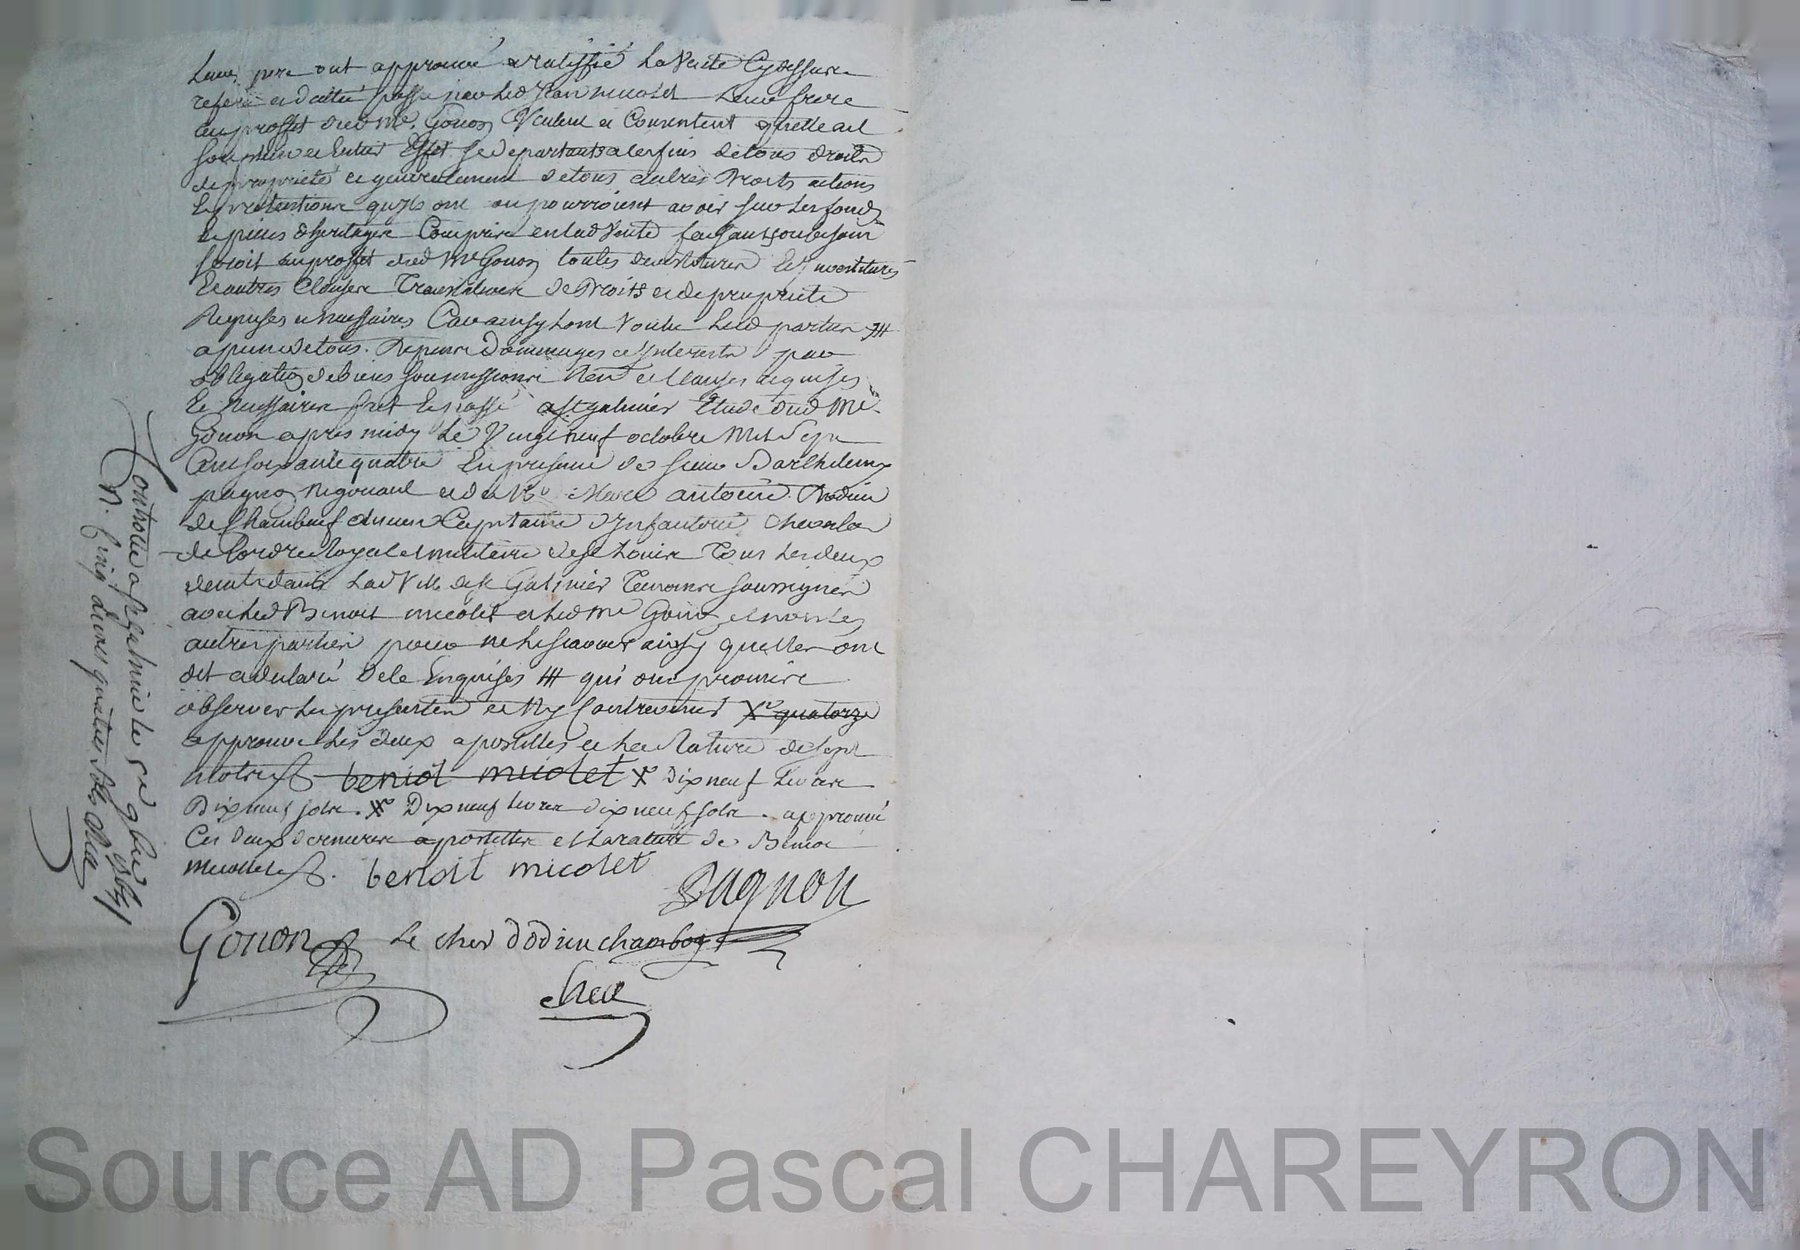 Leur pere ont approuvé et ratiffié La Vente Cydessus
referé et dattée passé par Led Jean micolet Leur frere
au proffit dud Me. Gonon Veulent et Consentent quelle ait
son plein et entier Effet se departants a ces fins de tous droits
de propriété et generalement de tous autres Droits actions
Et pretentions quils ont ou pourroient avoir sur Les fonds
Et pieces d'heritages Comprises en lad Vente faisants sy besoin
seroit au proffit dud Me Gonon toutes devestitures Et investitures
Et autres Clauses Translatives de Droits et de propriété
Requises et necessaires Car ainsy L'ont Voulu Lesd parties #
a peine de tous. Depens Dommages et Interests par
obligation de biens soumissions Ren et Clauses requises
Et Necessaires fait Et passé a st galmier Etude dud Me.
Gonon apres midy Le Vingt neuf octobre Mil Sept
Cent soixante quatre En presence de sieur Barthelemy
pagnon Negociant et de Mre Marc antoine Dodieu
de Chambeuf ancien Capitaine d'Infanterie chevalier
de L'ordre Royal et militaire de st Louis Tous Les deux
residants Lad Ville de st Galmier Temoins soussignés
avec Led Benoit micolet et Led Me Gonon et non Les
autres parties pour ne Le scavoir ainsy quelles ont
dit et declaré de ce Enquises # qui ont promis
observer Les presentes et N'y Contrevenir Xe quatorze
approuve Les deux apostilles et La Rature de sept
mots benoit micolet X Dix neuf Livres
Dix neuf sols. X Dix neuf Livres dix neuf sols. approuvé
Ces deux dernieres apostilles et La rature de Benoit
micolet benoit micolet
Pagnon
Gonon Le cher Dodieu chambeuf
cher
Controllé a st Galmier le 5e 9bre 1764
R. cinq Livres quatre sols